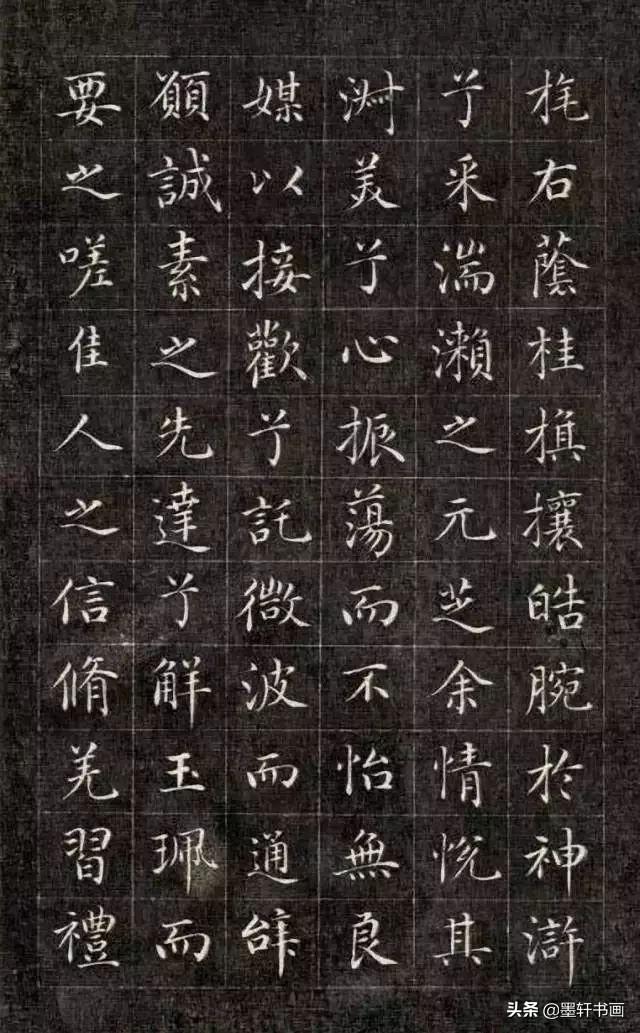 旄右蔭桂旗攘皓腕於神滸
兮采湍瀨之元芝余情悅其
淑美兮心振蕩而不怡無良
媒以接歡兮託微波而通辭
願誠素之先達兮解玉珮而
要之嗟佳人之信脩羌習禮
头条@墨轩书画